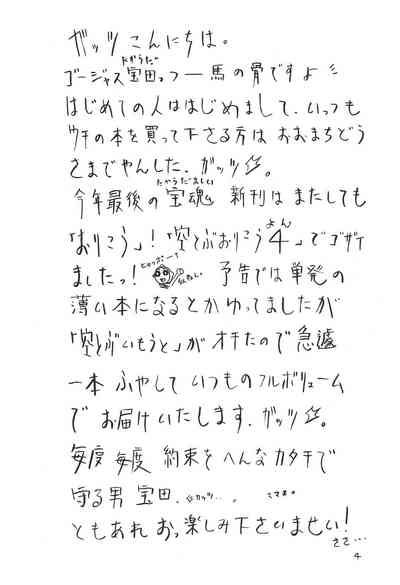 ガッツ こんにちは。
ゴージャス宝田っつー馬の骨ですよ
はじめての人ははじめまして、いっつも
ウチの本を買って下さる方は おおまちどう
さまでやんした、ガッツ☆。
今年最後の 宝魂 新刊は またしても
「おりこう」!「空とぶおりこう4」でゴザイ
ましたっ! 予告では単発の
薄い本になるとかゆってましたが
「空とぶいもうと」がオチたので急遽
一本 ふやして いつものフルボリューム
で お届けいたします、ガッツ☆。
毎度 毎度 約束を へんなカタチで
守る男 宝田、
ともあれ おっ楽しみ下さいませい!
さて…
4